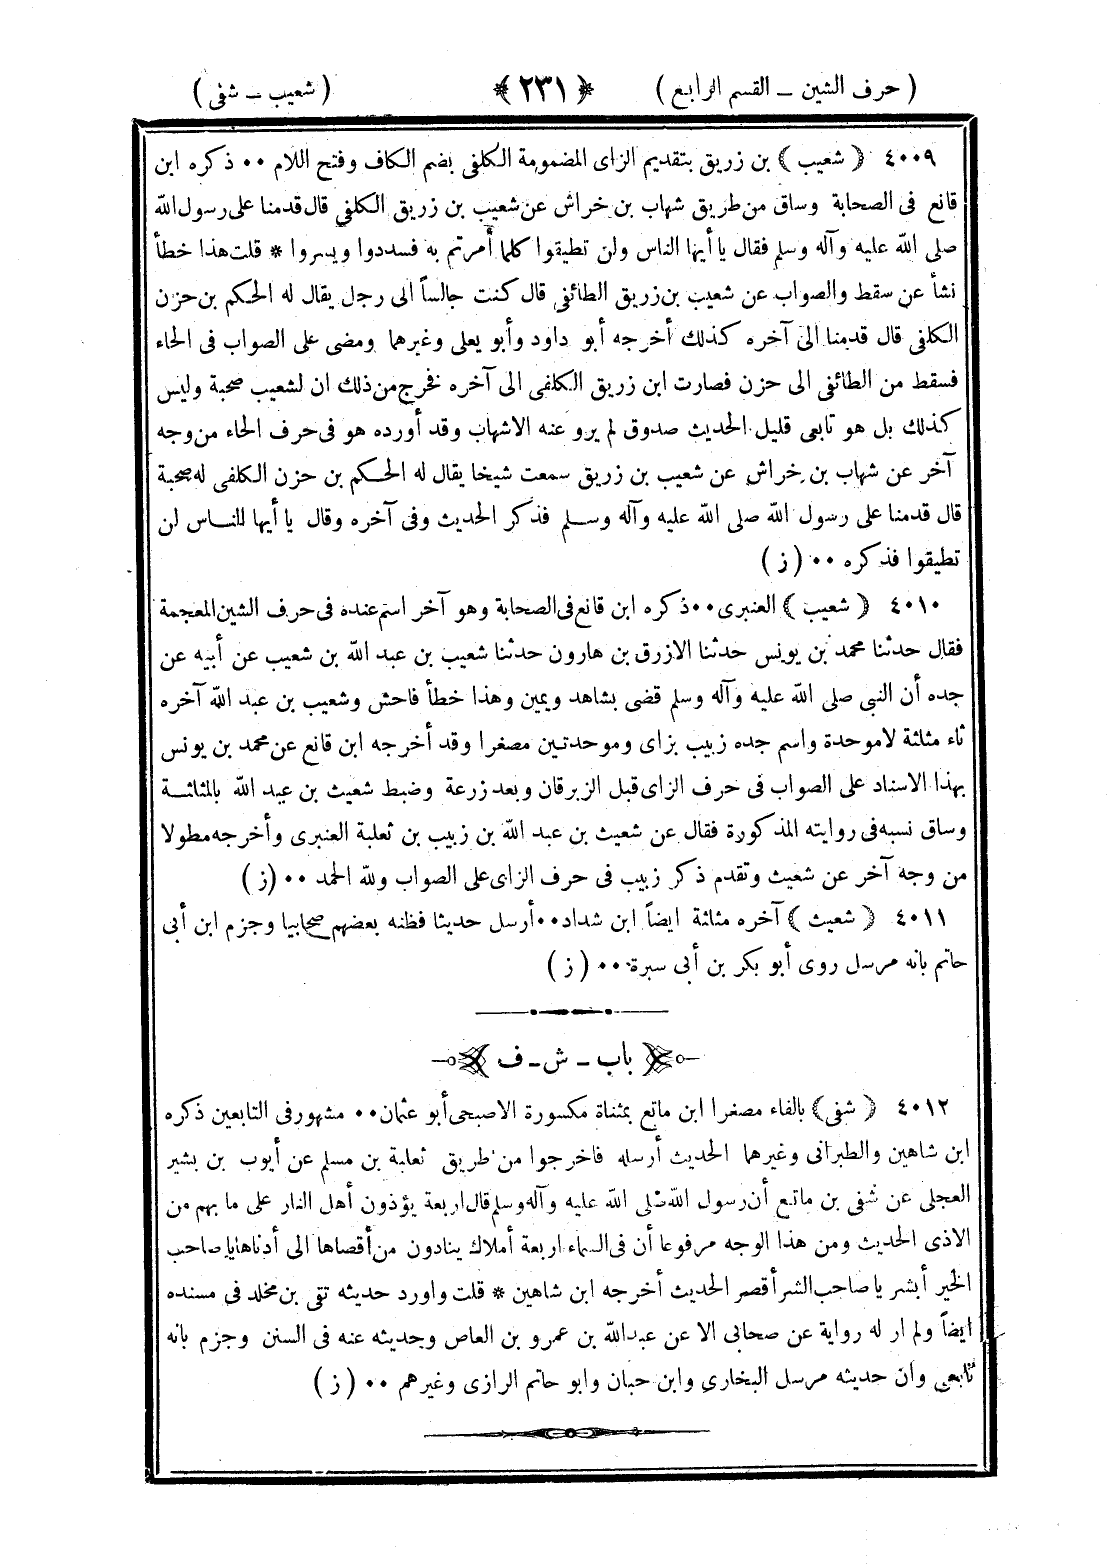 ( حرف الشين ــ القسم الرابع ) ﴿ ٢٣١ ﴾ ( شعيب ــ شفى )
٤٠٠٩ ﴿ شعيب ﴾ بن زريق بتقديم الزاى المضمومة الكلفى بضم الكاف وفتح اللام ٠٠ ذكره ابن
قانع فى الصحابة وساق من طريق شهاب بن خراش عن شعيب بن زريق الكلفي قال قدمنا على رسول الله
صلى الله عليه وآله وسلم فقال يا أيها الناس ولن تطيقوا كلما أمرتم به فسددوا ويسروا * قلت هذا خطأ
نشأ عن سقط والصواب عن شعيب بن زريق الطائفى قال كنت جالساً الى رجل يقال له الحكم بن حزن
الكلفى قال قدمنا الى آخره كذلك أخرجه أبو داود وأبو يعلى وغيرهما ومضى على الصواب فى الحاء
فسقط من الطائفى الى حزن فصارت ابن زريق الكلفى الى آخره فخرج من ذلك ان لشعيب صحبة وليس
كذلك بل هو تابعى قليل الحديث صدوق لم يرو عنه الاشهاب وقد أورده هو فى حرف الحاء من وجه
آخر عن شهاب بن خراش عن شعيب بن زريق سمعت شيخا يقال له الحكم بن حزن الكلفى له صحبة
قال قدمنا على رسول الله صلى الله عليه وآله وسلم فذكر الحديث وفى آخره وقال يا أيها الناس لن
تطيقوا فذكره ٠٠ ( ز )
٤٠١٠ ﴿ شعيب ﴾ العنبرى ٠٠ ذكره ابن قانع فى الصحابة وهو آخر اسم عنده فى حرف الشين المعجمة
فقال حدثنا محمد بن يونس حدثنا الازرق بن هارون حدثنا شعيب بن عبد الله بن شعيب عن أبيه عن
جده أن النبي صلى الله عليه وآله وسلم قضى بشاهد ويمين وهذا خطأ فاحش وشعيب بن عبد الله آخره
ثاء مثلثة لا موحدة واسم جده زبيب بزاى وموحدتين مصغرا وقد أخرجه ابن قانع عن محمد بن يونس
بهذا الاسناد على الصواب فى حرف الزاى قبل الزبرقان وبعد زرعة وضبط شعيث بن عبد الله بالمثلثة
وساق نسبه فى روايته المذكورة فقال عن شعيث بن عبد الله بن زبيب بن ثعلبة العنبرى وأخرجه مطولا
من وجه آخر عن شعيث وتقدم ذكر زبيب فى حرف الزاى على الصواب ولله الحمد ٠٠ ( ز )
٤٠١١ ﴿ شعيث ﴾ آخره مثلثة ايضاً ابن شداد ٠٠ أرسل حديثا فظنه بعضهم صحابيا وجزم ابن أبى
حاتم بانه مرسل روى أبو بكر بن أبى سبرة ٠٠ ( ز )
باب ــ ش ــ ف
٤٠١٢ ﴿ شفى ﴾ بالفاء مصغرا ابن ماتع بمثناة مكسورة الاصبحى أبو عثمان ٠٠ مشهور فى التابعين ذكره
ابن شاهين والطبرانى وغيرهما الحديث أرسله فاخرجوا من طريق ثعلبة بن مسلم عن أيوب بن بشير
العجلى عن شفى بن ماتع أن رسول الله صلى الله عليه وآله وسلم قال اربعة يؤذون أهل النار على ما بهم من
الاذى الحديث ومن هذا الوجه مرفوعا أن فى السماء اربعة أملاك ينادون من أقصاها الى أدناها يا صاحب
الخير أبشر يا صاحب الشر أقصر الحديث أخرجه ابن شاهين * قلت واورد حديثه تقى بن مخلد فى مسنده
ايضاً ولم ار له رواية عن صحابى الا عن عبدالله بن عمرو بن العاص وحديثه عنه فى السنن وجزم بانه
تابعى وان حديثه مرسل البخارى وابن حبان وابو حاتم الرازى وغيرهم ٠٠ ( ز )